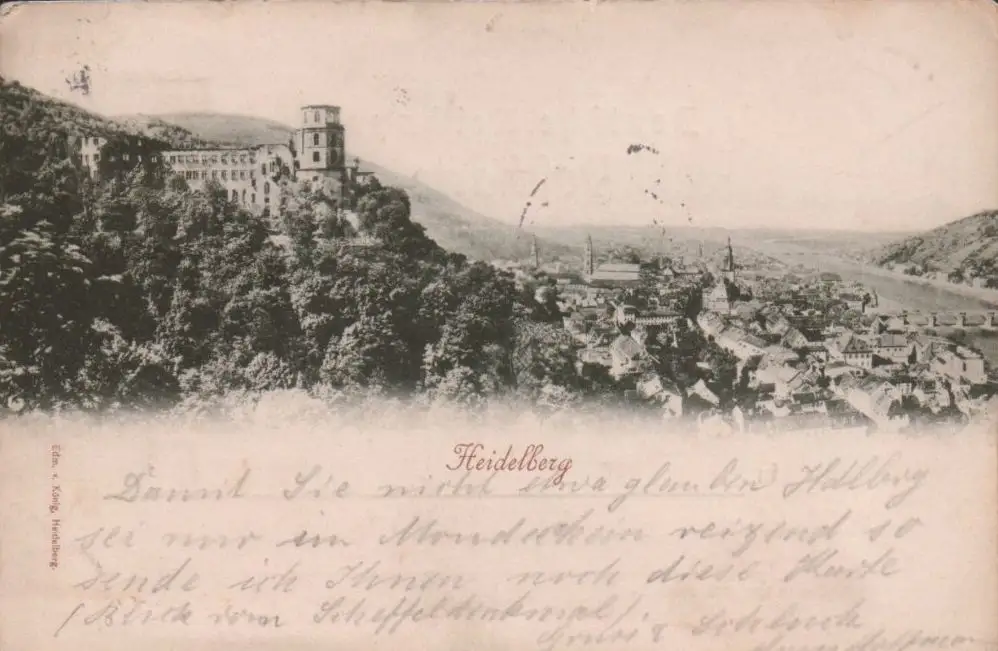 Heidelberg
Damit Sie nicht etwa glauben Hdlberg
sei nur im Mondschein reizend so
sende ich Ihnen noch diese Karte
(Blick vom Scheffeldenkmal).
Gruss &
Edm. v. König, Heidelberg.